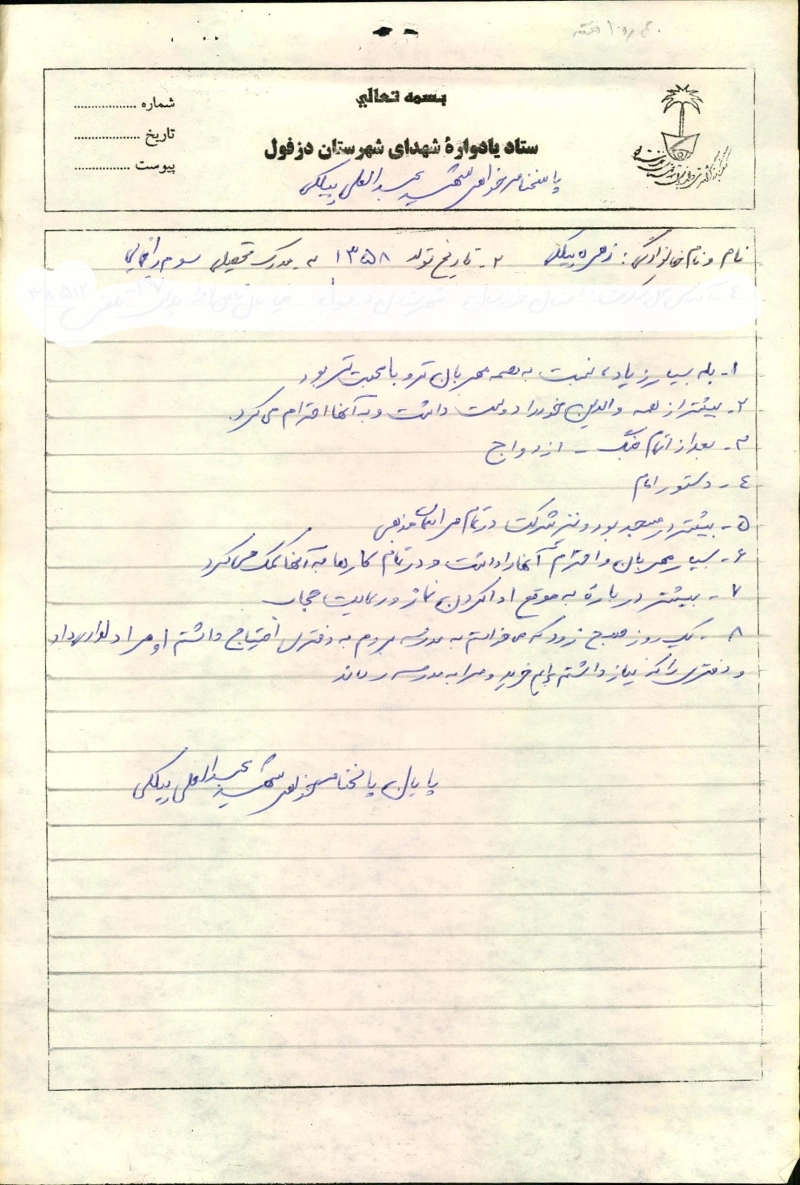 بسمه تعالی
شماره ..................
تاریخ ..................
پیوست ................
ستاد یادوارهٔ شهدای شهرستان دزفول
پاسخنامه خواهر شهید عبدالعلی بیگلی
نام و نام خانوادگی: زهره بیگلی ۲- تاریخ تولد ۱۳۵۸ ۳- مدرک تحصیلی سوم راهنمایی
۱- بله بسیار زیاد، نسبت به همه مهربان تر و با محبت تر بود
۲- بیشتر از همه والدین خود را دوست داشت و به آنها احترام می کرد.
۳- بعد از اتمام جنگ - ازدواج
۴- دستور امام
۵- بیشتر در مسجد بود و نیز شرکت در تمام مراسمات مذهبی
۶- بسیار مهربان و احترام آنها را داشت و در تمام کارها به آنها کمک می کرد
۷- بیشتر درباره به موقع ادا کردن نماز و رعایت حجاب
۸- یک روز صبح زود که می خواستم به مدرسه بروم به دفتری احتیاج داشتم او مرا دلداری داد
و دفتری را که نیاز داشتم برایم خرید و مرا به مدرسه رساند
پایان پاسخنامه خواهر شهید عبدالعلی بیگلی